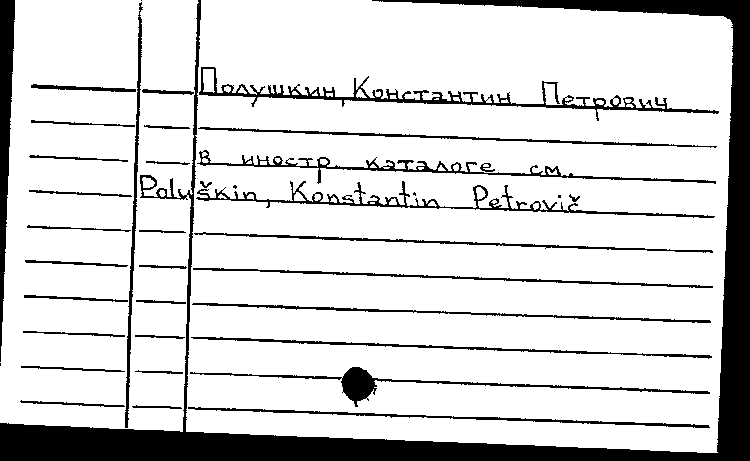 Полушкин, Константин Петрович
в иностр. каталоге см.
Poluškin, Konstantin Petrovič